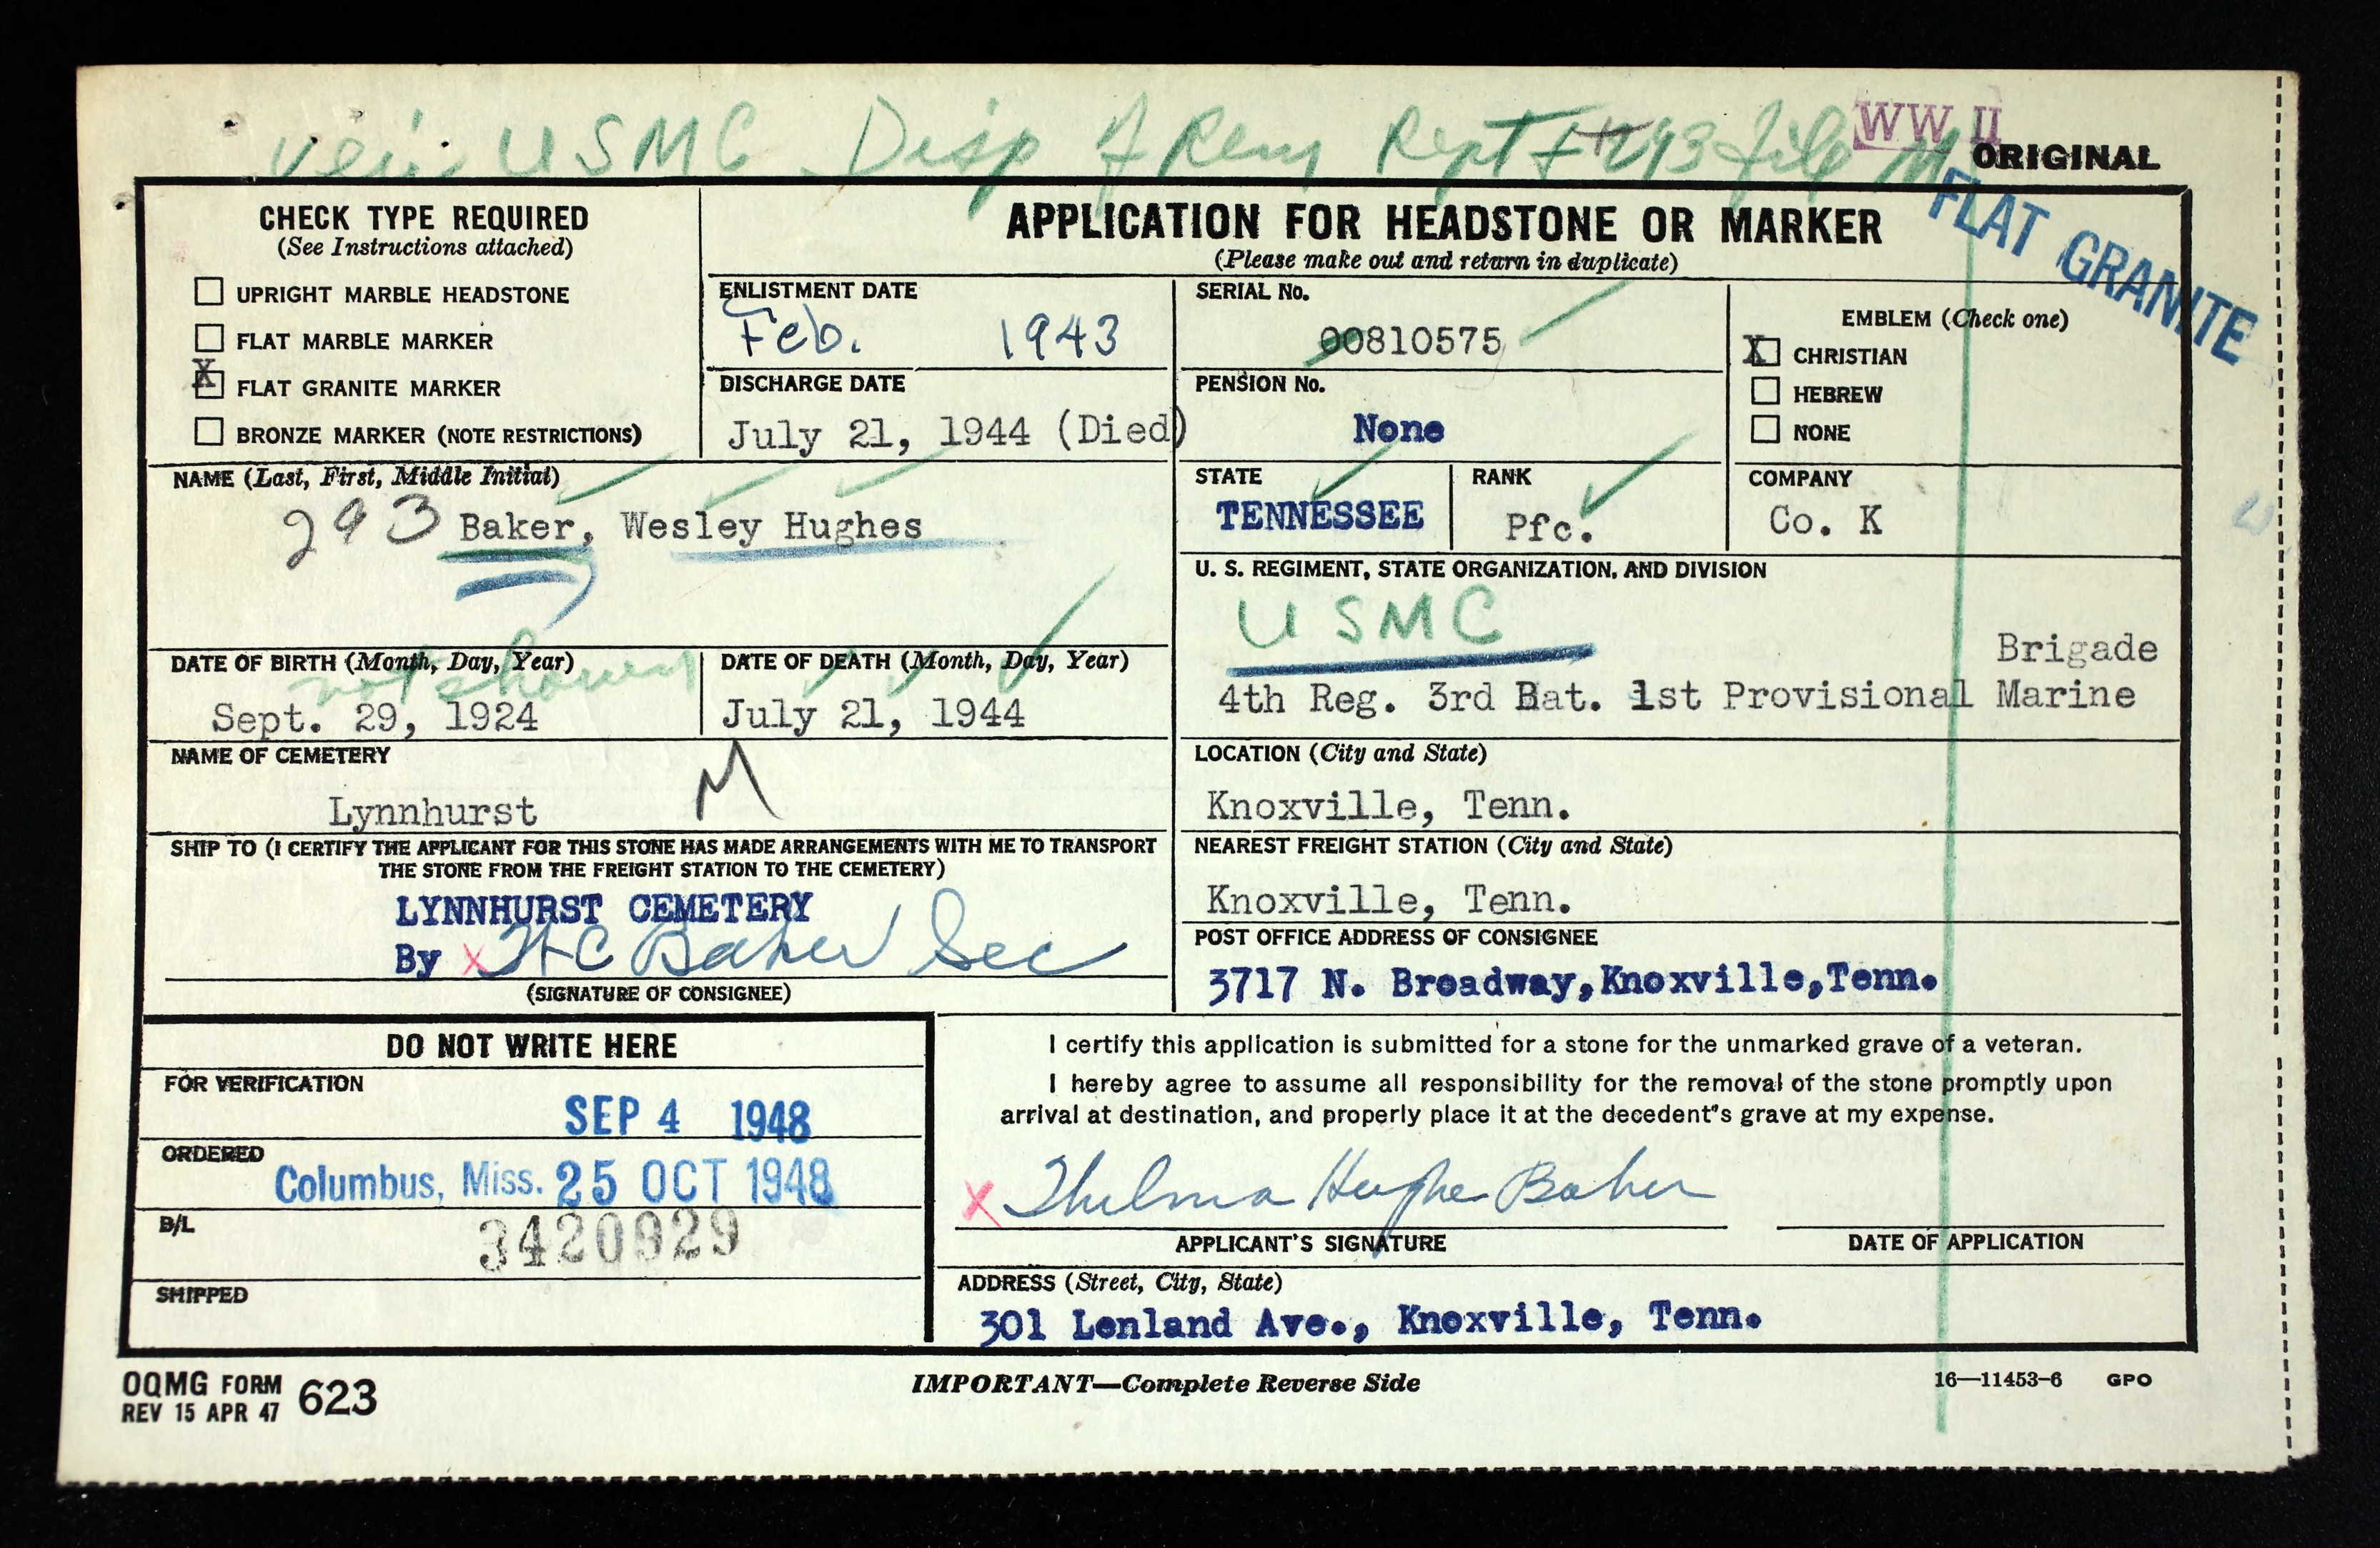 USMC Disp of Rem Rept # 293 file M
WW II
ORIGINAL
FLAT GRANITE
CHECK TYPE REQUIRED
(See Instructions attached)
☐ UPRIGHT MARBLE HEADSTONE
☐ FLAT MARBLE MARKER
X FLAT GRANITE MARKER
☐ BRONZE MARKER (NOTE RESTRICTIONS)
APPLICATION FOR HEADSTONE OR MARKER
(Please make out and return in duplicate)
ENLISTMENT DATE
Feb. 1943
DISCHARGE DATE
July 21, 1944 (Died)
SERIAL No.
00810575
PENSION No.
None
EMBLEM (Check one)
X CHRISTIAN
☐ HEBREW
☐ NONE
NAME (Last, First, Middle Initial)
293 Baker, Wesley Hughes
STATE
TENNESSEE
RANK
Pfc.
COMPANY
Co. K
U. S. REGIMENT, STATE ORGANIZATION, AND DIVISION
USMC
Brigade
4th Reg. 3rd Bat. 1st Provisional Marine
DATE OF BIRTH (Month, Day, Year)
not shown
Sept. 29, 1924
DATE OF DEATH (Month, Day, Year)
July 21, 1944
NAME OF CEMETERY
Lynnhurst
M
LOCATION (City and State)
Knoxville, Tenn.
SHIP TO (I CERTIFY THE APPLICANT FOR THIS STONE HAS MADE ARRANGEMENTS WITH ME TO TRANSPORT
THE STONE FROM THE FREIGHT STATION TO THE CEMETERY)
LYNNHURST CEMETERY
By x H C Baker Sec
(SIGNATURE OF CONSIGNEE)
NEAREST FREIGHT STATION (City and State)
Knoxville, Tenn.
POST OFFICE ADDRESS OF CONSIGNEE
3717 N. Broadway, Knoxville, Tenn.
DO NOT WRITE HERE
FOR VERIFICATION
SEP 4 1948
ORDERED
Columbus, Miss. 25 OCT 1948
B/L
3420929
SHIPPED
I certify this application is submitted for a stone for the unmarked grave of a veteran.
I hereby agree to assume all responsibility for the removal of the stone promptly upon
arrival at destination, and properly place it at the decedent"s grave at my expense.
x Thelma Hughes Baker
APPLICANT'S SIGNATURE
DATE OF APPLICATION
ADDRESS (Street, City, State)
301 Lenland Ave., Knoxville, Tenn.
OQMG FORM 623
REV 15 APR 47
IMPORTANT—Complete Reverse Side
16—11453-6 GPO